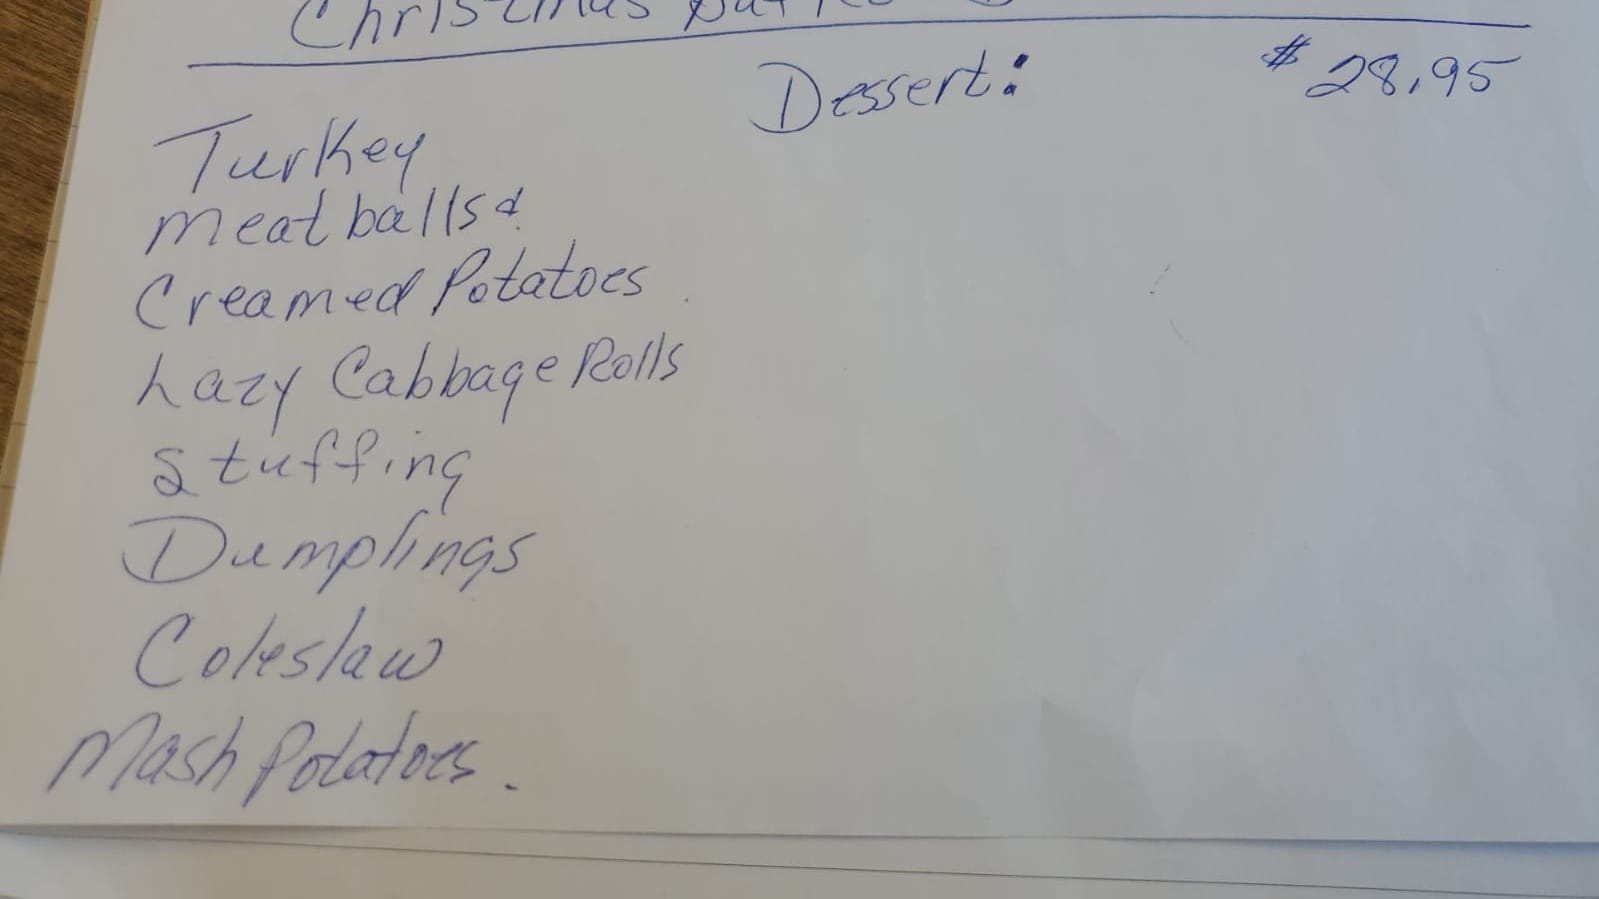 Christmas
Dessert: $28.95
Turkey
Meatballs &
Creamed Potatoes
Lazy Cabbage Rolls
Stuffing
Dumplings
Coleslaw
Mash Potatoes.